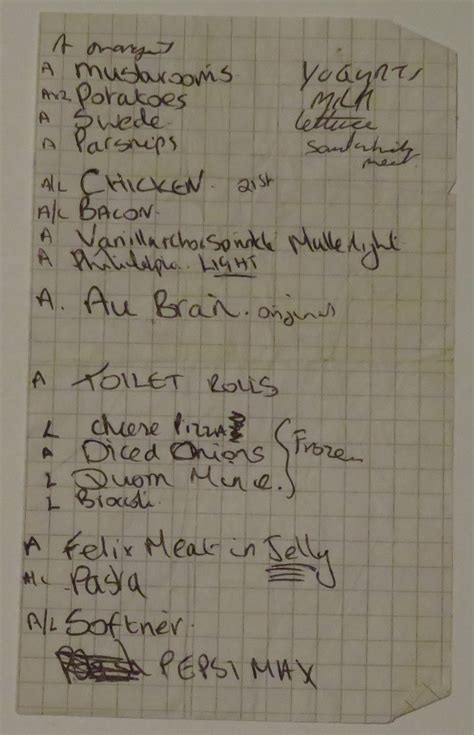 A oranges
A mustarooms
Potatoes
A Swede
A Parsnips
YOGURTS
Milk
lettuce
Sandwich
meat
A/L CHICKEN. 21st
A/L BACON.
A Vanillachocsprinkle Mullerlight
A Philidelpia LIGHT
A. Au Bran. original
A TOILET ROLLS
L cheese PIZZA
A Diced Onions
L Quorn Mince.
Frozen
L Brocoli.
A Felix Meat in Jelly
Pasta
A/L Softner.
PEPSI MAX